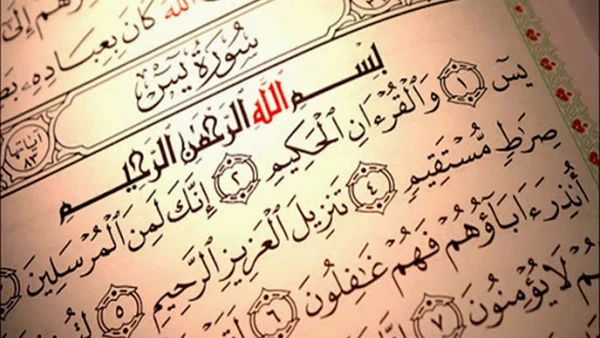 ـرُهُمْ إِلَىٰ
ٱللَّهَ كَانَ بِعِبَادِهِۦ
سُورَةُ يسٓ
آيَاتُهَا ٨٣
بِسْمِ ٱللَّهِ ٱلرَّحْمَٰنِ ٱلرَّحِيمِ
يسٓ ١ وَٱلْقُرْءَانِ ٱلْحَكِيمِ ٢ إِنَّكَ لَمِنَ ٱلْمُرْسَلِينَ
صِرَٰطٍ مُّسْتَقِيمٍ ٤ تَنزِيلَ ٱلْعَزِيزِ ٱلرَّحِيمِ ٥
أُنذِرَ ءَابَآؤُهُمْ فَهُمْ غَٰفِلُونَ ٦ لَقَدْ
ـهُمْ لَا يُؤْمِنُونَ ٧ إِنَّا